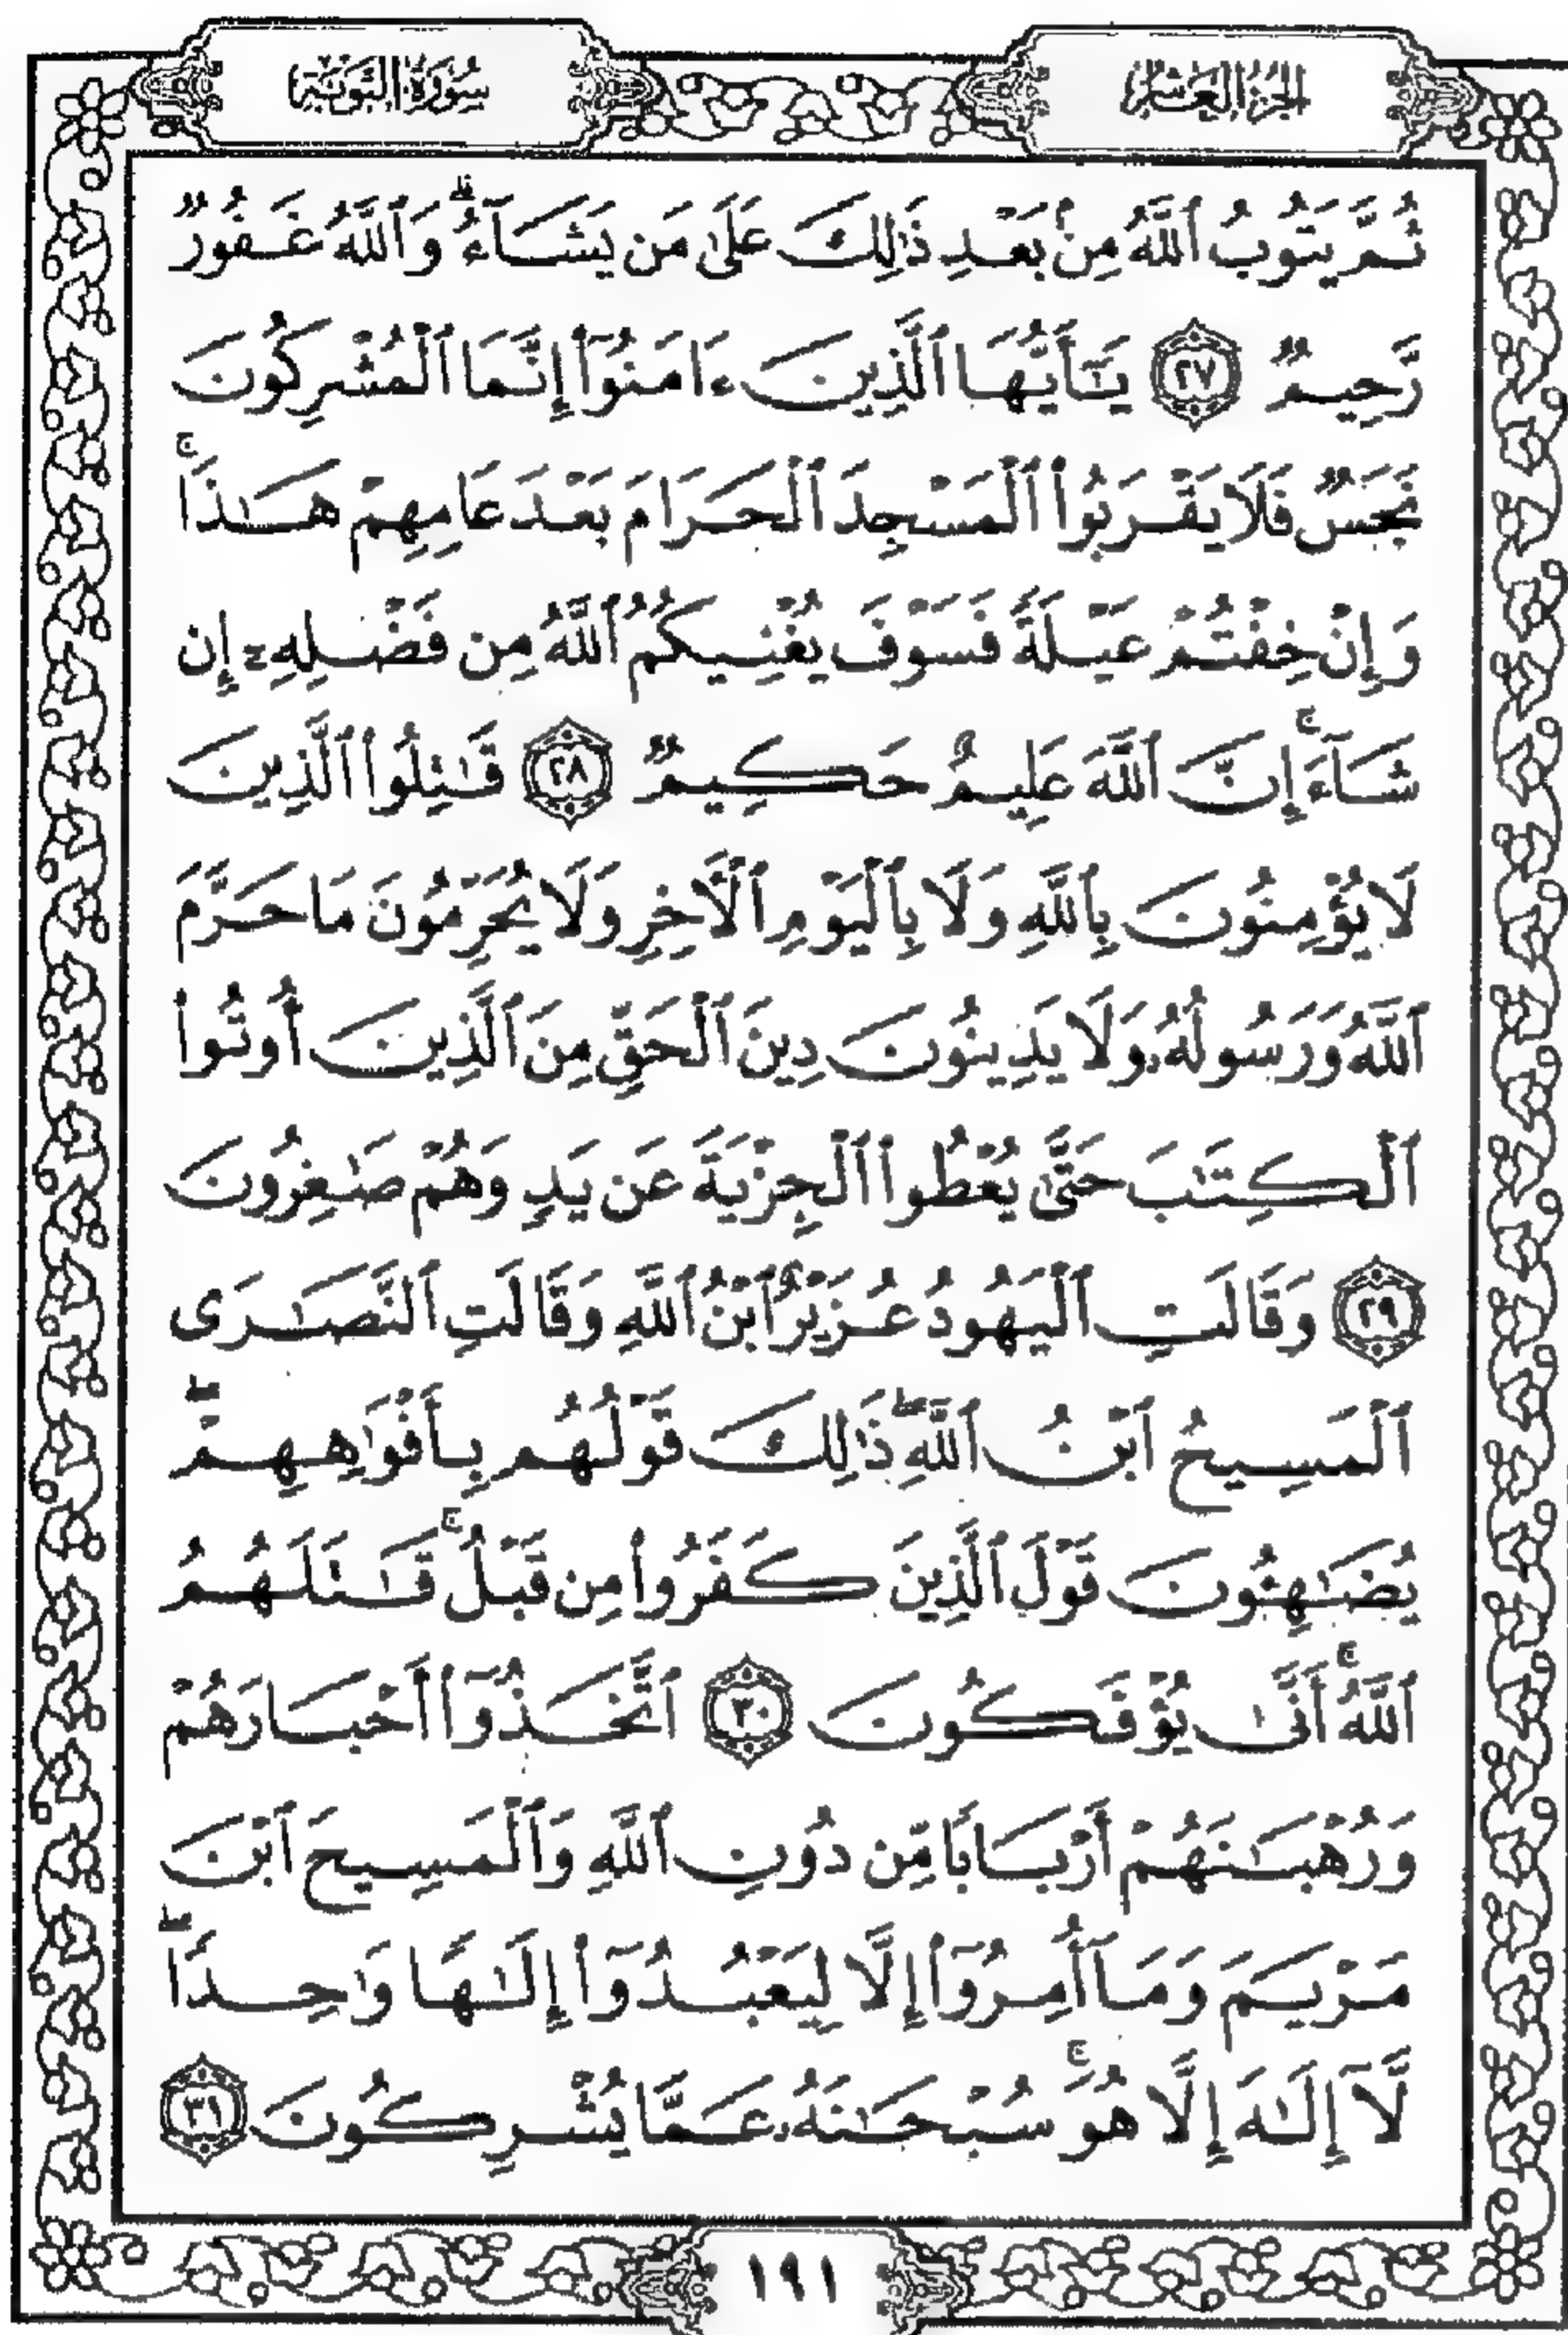 الجزء العاشر
سورة التوبة
ثُمَّ يَتُوبُ ٱللَّهُ مِنۢ بَعْدِ ذَٰلِكَ عَلَىٰ مَن يَشَآءُۗ وَٱللَّهُ غَفُورٌ
رَّحِيمٌ ٢٧ يَٰٓأَيُّهَا ٱلَّذِينَ ءَامَنُوٓا۟ إِنَّمَا ٱلْمُشْرِكُونَ
نَجَسٌ فَلَا يَقْرَبُوا۟ ٱلْمَسْجِدَ ٱلْحَرَامَ بَعْدَ عَامِهِمْ هَٰذَاۚ
وَإِنْ خِفْتُمْ عَيْلَةً فَسَوْفَ يُغْنِيكُمُ ٱللَّهُ مِن فَضْلِهِۦٓ إِن
شَآءَۚ إِنَّ ٱللَّهَ عَلِيمٌ حَكِيمٌ ٢٨ قَٰتِلُوا۟ ٱلَّذِينَ
لَا يُؤْمِنُونَ بِٱللَّهِ وَلَا بِٱلْيَوْمِ ٱلْءَاخِرِ وَلَا يُحَرِّمُونَ مَا حَرَّمَ
ٱللَّهُ وَرَسُولُهُۥ وَلَا يَدِينُونَ دِينَ ٱلْحَقِّ مِنَ ٱلَّذِينَ أُوتُوا۟
ٱلْكِتَٰبَ حَتَّىٰ يُعْطُوا۟ ٱلْجِزْيَةَ عَن يَدٍ وَهُمْ صَٰغِرُونَ
٢٩ وَقَالَتِ ٱلْيَهُودُ عُزَيْرٌ ٱبْنُ ٱللَّهِ وَقَالَتِ ٱلنَّصَٰرَى
ٱلْمَسِيحُ ٱبْنُ ٱللَّهِۖ ذَٰلِكَ قَوْلُهُم بِأَفْوَٰهِهِمْۖ
يُضَٰهِـُٔونَ قَوْلَ ٱلَّذِينَ كَفَرُوا۟ مِن قَبْلُۚ قَٰتَلَهُمُ
ٱللَّهُۚ أَنَّىٰ يُؤْفَكُونَ ٣٠ ٱتَّخَذُوٓا۟ أَحْبَارَهُمْ
وَرُهْبَٰنَهُمْ أَرْبَابًا مِّن دُونِ ٱللَّهِ وَٱلْمَسِيحَ ٱبْنَ
مَرْيَمَ وَمَآ أُمِرُوٓا۟ إِلَّا لِيَعْبُدُوٓا۟ إِلَٰهًا وَٰحِدًاۖ
لَّآ إِلَٰهَ إِلَّا هُوَۚ سُبْحَٰنَهُۥ عَمَّا يُشْرِكُونَ ٣١
١٩١